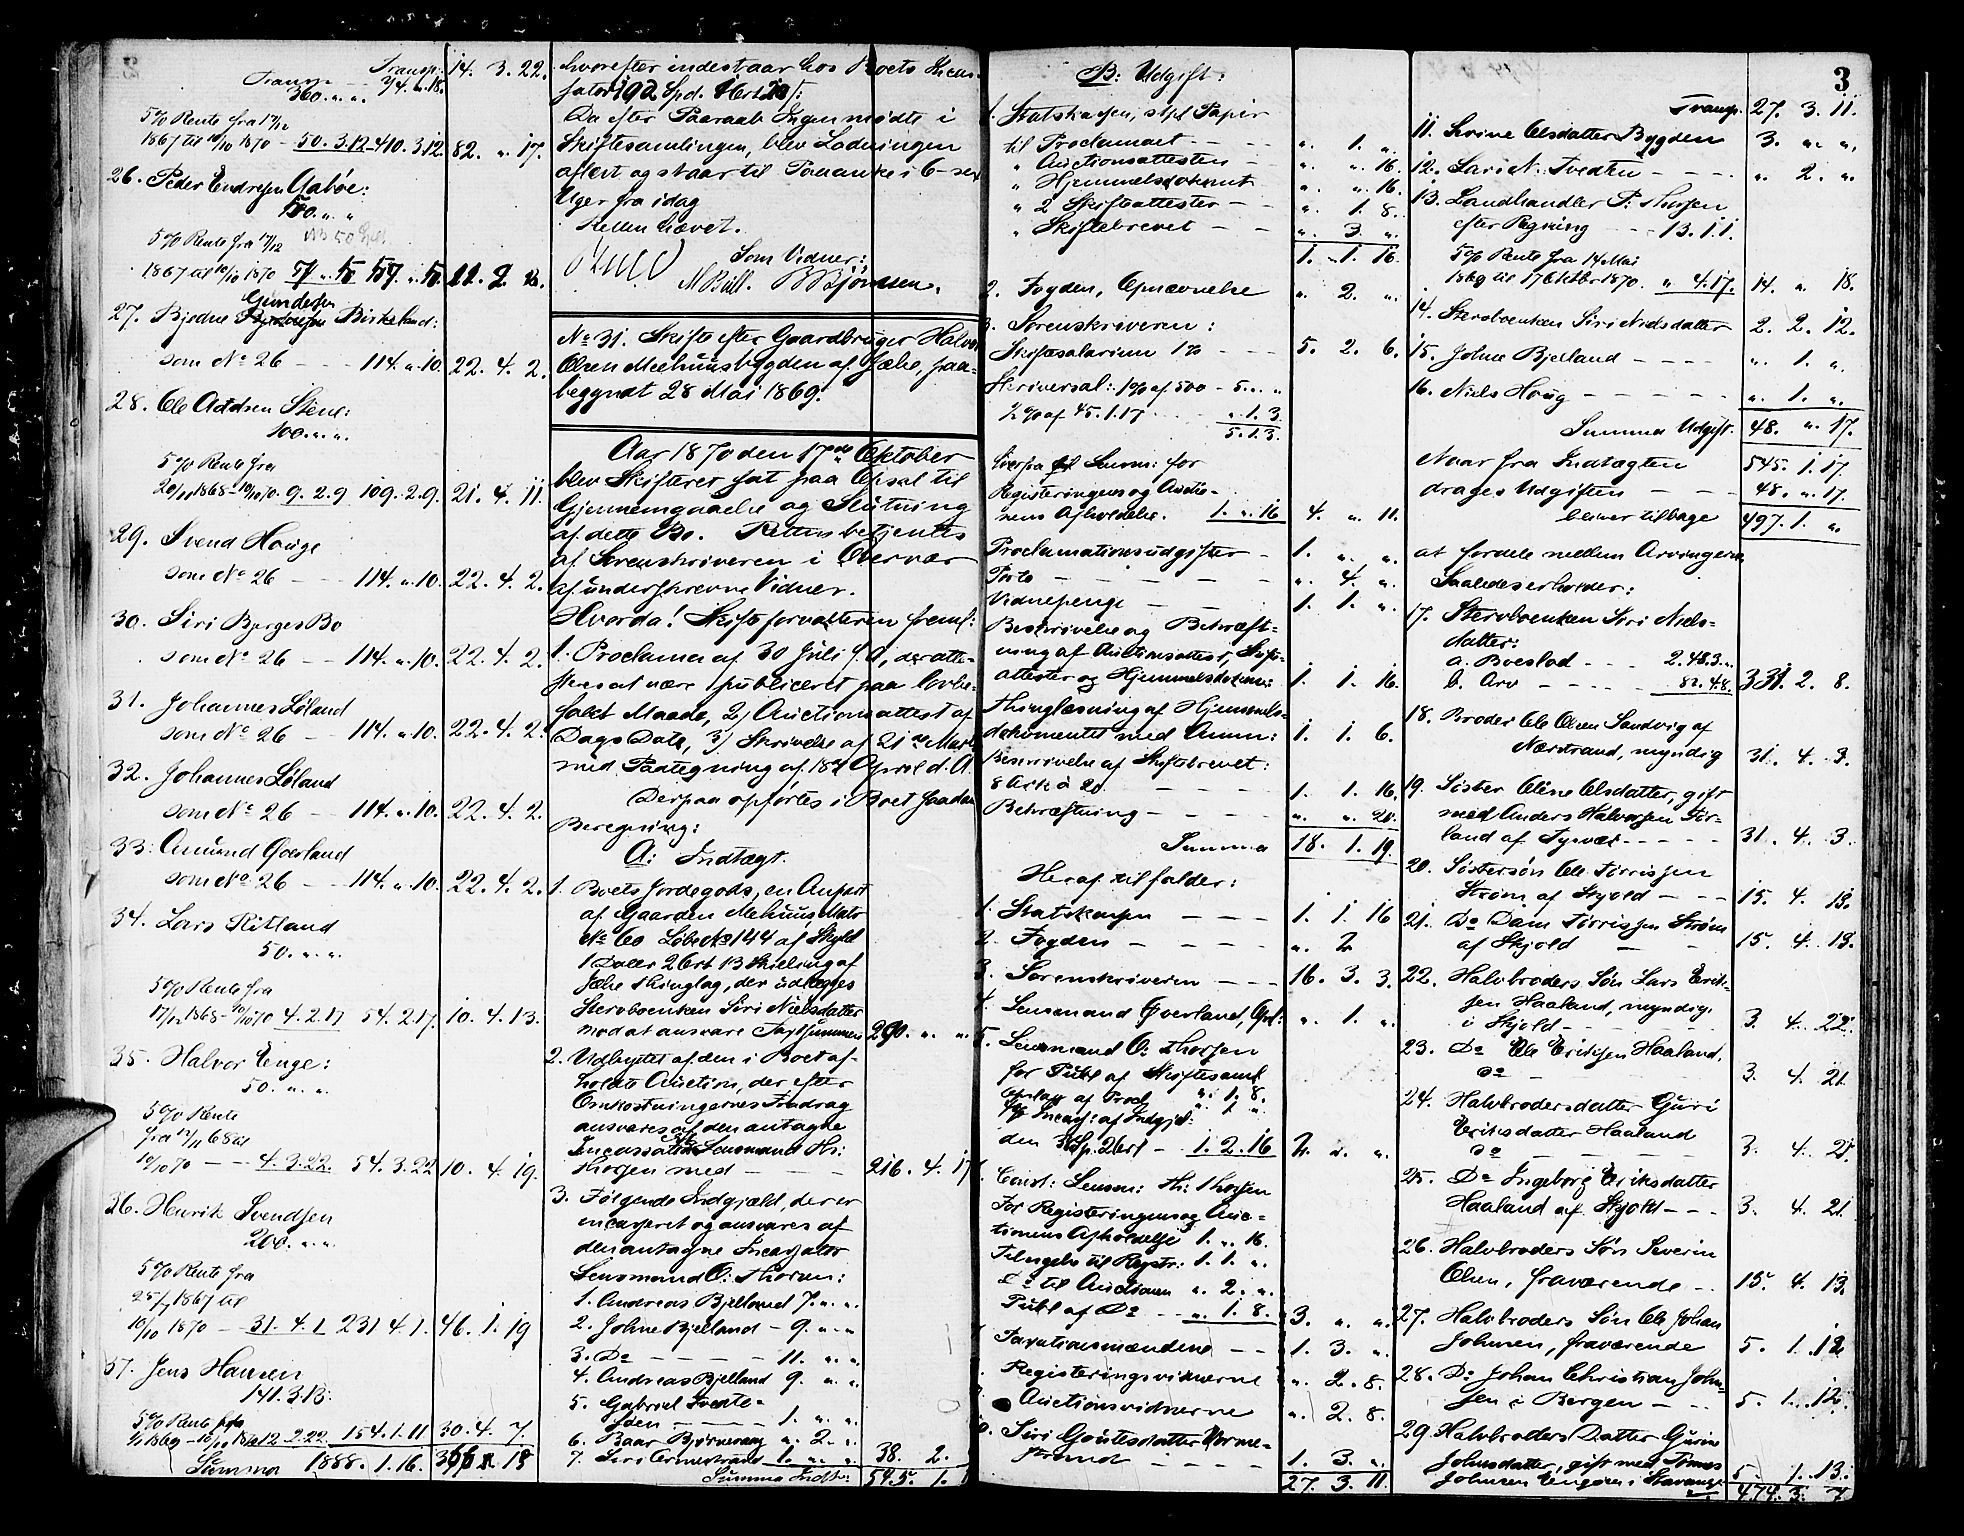 Transp: 14. 3. 22.
Transp - - 94. „. 18.
360. „. „.
5% Rente fra 17/12
1867 til 10/10 1870 - 50. 3. 12 - 410. 3. 12. 82. „. 17.
26. Peder Endresen Aabøe:
5% Rente fra 17/12
1867 til 10/10 1870
27. Bjedne Gundersen Birkeland:
som No 26 - - - 114. „. 10. 22. 4. 2.
28. Ole Addsen Stene:
100. „. „.
5% Rente fra
20/11 1868 - 10/10 70. 9. 2. 9 109. 2. 9. 21. 4. 11.
29. Svend Houge
som No 26 - - - 114. „. 10. 22. 4. 2.
30. Siri Bjerges Bo
som No 26 - - 114. „. 10. 22. 4. 2.
31. Johannes Løland
som No 26 - - 114. „. 10. 22. 4. 2.
32. Johannes Løland
som No 26 - - 114. „. 10. 22. 4. 2.
33. Amund Qverland
som No 26 - - 114. „. 10. 22. 4. 2.
34. Lars Ritland
50. „. „.
5% Rente fra
17/12 1868 - 10/10 70 4. 2. 17 54. 2. 17. 10. 4. 13.
35. Halvor Enge:
50. „. „.
5% Rente
fra 12/11 68 til
10/10 70 - - - 4. 3. 22. 54. 3. 22 10. 4. 19.
36. Henrik Svendsen
200. „. „.
5% Rente fra
25/7 1867 til
10/10 1870 - - 31. 4. 1 231 4. 1. 46. 1. 19
37. Jens Hansen
141. 3. 13:
5% Rente fra
1869 - 10/10 1870 12 2. 22. 154. 1. 11 30. 4. 7.
Summa 1888. 1. 16.
hvorefter indestaar hos Boets Incas-
sator 192 Spd.
Da efter Paaraab Ingen mødte i
Skiftesamlingen, blev Lodningen
aflæst og staar til Paaanke i 6 - sex
Uger fra idag
Retten hævet.
Som Vidner:
B Bjørnsen.
No 31. Skifte efter Gaardbruger Halvor
Olsen Meehuusbygden af Jælse, paa-
begyndt 28 Mai 1869.
Aar 1870 den 17de Oktober
blev Skifteret sat paa Opsal til
Gjennemgaaelse og Slutning
af dette Bo. Retten betjentes
af Sorenskriveren i Overvær
af underskrevne Vidner.
Hvorda! Skifteforvalteren freml:
1. Proclama af 30 Juli f. A, der atte-
steres at være publiceret paa lovbe-
falet Maade, 2) Auctionsattest af
Dags Dato, 3) Skrivelse af 21de Marts
med Paategning af 18de April d. A.
Derpaa opførtes i Boet saadan
Beregning:
A: Indtægt.
1. Boets Jordegods, en Anpart
af Gaarden Mehuus, Matr
No 60 Løbe No 144 af Skyld
1 Daler 2 Ort 13 Skilling af
Jælse Thinglag, der udlægges
Stervboenken Siri Nielsdatter
mod at ansvare Taxtsummen 290. „. „.
2. Udbyttet af den i Boet af-
holdte Auction, der efter
Omkostningernes Fradrag
ansvares af den antagne
Incassator Lensmand Th:
Thorsen med - - - 216. 4. 17
3. Følgende Indgjæld, der er
incasseret og ansvares af
den antagne Incassator
Lensmand O: Thorsen:
1. Andreas Bjelland 7. „. „.
2. Johne Bjelland - 9. „. „.
3. Do - - - - - 11. „. „.
4. Andreas Bjelland 9. „. „.
5. Gabriel Tveite-
den - - - - 1. „. „.
6. Baar Bjørnevaag „. 2. „.
7. Siri Ormestrand 1. „. „. 38. 2.
Summa Indt: 545. 1. 1
B: Udgift:
1. Statskassen, stpl. Papir
til Proclamaet - - - „. 1. „.
„ Auctionsattesten - - „. „. 16.
„ Hjemmelsdokumt - - „. „. 16.
„ 2 Skifteattester - - „. 1. 8.
„ Skiftebrevet - - „. 3. „.
1. 1. 16.
2. Fogden, Opnævnelse „. 2. „.
3. Sorenskriveren:
Skiftesalarium 1% - - - 5. 2. 6.
Skriversal: 1% af 500 - 5. „. „
½% af 45. 1. 17 - - - „. 1. 3.
5. 1. 3.
herfra Lensm: for
Registeringens og Aucti-
nens Afholdelse. 1. „. 16 4. „. 11.
Proclamationsudgifter - 1. „. „.
Porto - - - - „. 4. „.
Vidnepenge - - 1. 1. „.
Beskrivelse og Bekræft-
ning af Auctionsattest, Skifte-
attester og Hjemmelsdokum: 1. 1. 16.
Thinglæsning af Hjemmels-
dokumentet med Anm: 1. 1. 6.
Beskrivelse af Skiftebrevet:
8 Ark à 20 - - - 1. 1. 16.
Bekræftning - - - - „. „. 20.
Summa 18. 1. 19.
Heraf tilfalder:
1. Statskassen - - - 1. 1. 16
2. Fogden - - - - „. 2
3. Sorenskriveren - - - 16. 3. 3.
4. Lensmand Qverland, Opl: „. 1. „.
5. Lensmand O: Thorsen
for Publ af Skiftesaml „. 1. 8.
Opslag af Procl „. 1. „.
for Incass: af Indgjd:
den 38 Sp. 2 Ort - 1. 2. 16 2. „. „.
Const: Lensm: Th: Thorsen
For Registeringens og Auc-
tionens Afholdelse 1. „. 16.
Tilngelse til Registr: 1. 1. „.
Do til Auctionen „. 2. „.
Publ af Do - - „. 1. 8. 3. „. „.
Taxationsmændene - - 1. 3. „.
Registeringsvidnerne „. 2. 8.
Auctionsvidnerne „. 2. 8.
Siri Goutesdatter Orme-
strand - - - - 1. 3. „.
27. 3. 11.
3
Transp. 27. 3. 11.
11. Serine Olsdatter Bygden 3. „. „.
12. Lars N: Tvedten - - - - „. 2. „.
13. Landhandler P: Thorsen
efter Regning - - - 13. 1. 1.
5% Rente fra 14 Mai
1869 til 17 Oktbr 1870. „. 4. 17. 14. „. 18.
14. Stervboenken Siri Nielsdatter 2. 2. 12.
15. Johne Bjerland - - - - „. 1. „.
16. Niels Houg - - - - - „. 1. „.
Summa Udgift. 48. „. 17.
Naar fra Indtægten 545. 1. 17
drages Udgiften - - 48. „. 17.
bliver tilbage 497. 1. „.
at fordele mellem Arvingerne
Saaledes erholder:
17. Stervboenken Siri Niels-
datter:
a. Boeslod - - - 2. 48. 3. „.
b. Arv - - - - 82. 4. 8. 331. 2. 8.
18. Broder Ole Olsen Sandvig af
Nærstrand, myndig 31. 4. 3.
19. Søster Oline Olsdatter, gift
med Anders Halvorsen Tør-
land af Tysvær - - - - 31. 4. 3.
20. Søstersøn Ole Tørrissen
Strøm af Skjold - - - 15. 4. 13.
21. Do Dam Tørrissen Strøm
af Skjold - - 15. 4. 13.
22. Halvbroders Søn Lars Erik-
sen Haaland, myndig,
i Skjold - - - - - 3. 4. 22.
23. Do Ole Eriksen Haaland,
Do - - - - 3. 4. 21.
24. Halvbrodersdatter Guri
Eriksdatter Haaland
Do - - - - - - 3. 4. 21.
25. Do Ingeborg Eriksdatter
Haaland af Skjold - - - 3. 4. 21
26. Halvbroders Søn Severin
Olsen, fraværende - - 15. 4. 13.
27. Halvbroders Søn Ole Johan
Johnsen, fraværende 5. 1. 12
28. Do Johan Christian John-
sen i Bergen - - - 5. 1. 12.
29 Halvbroders Datter Gurine
Johnsdatter, gift med Tønnes
Johnsen Engøen i Stavanger 5. 1. 13.
474. 3. 7